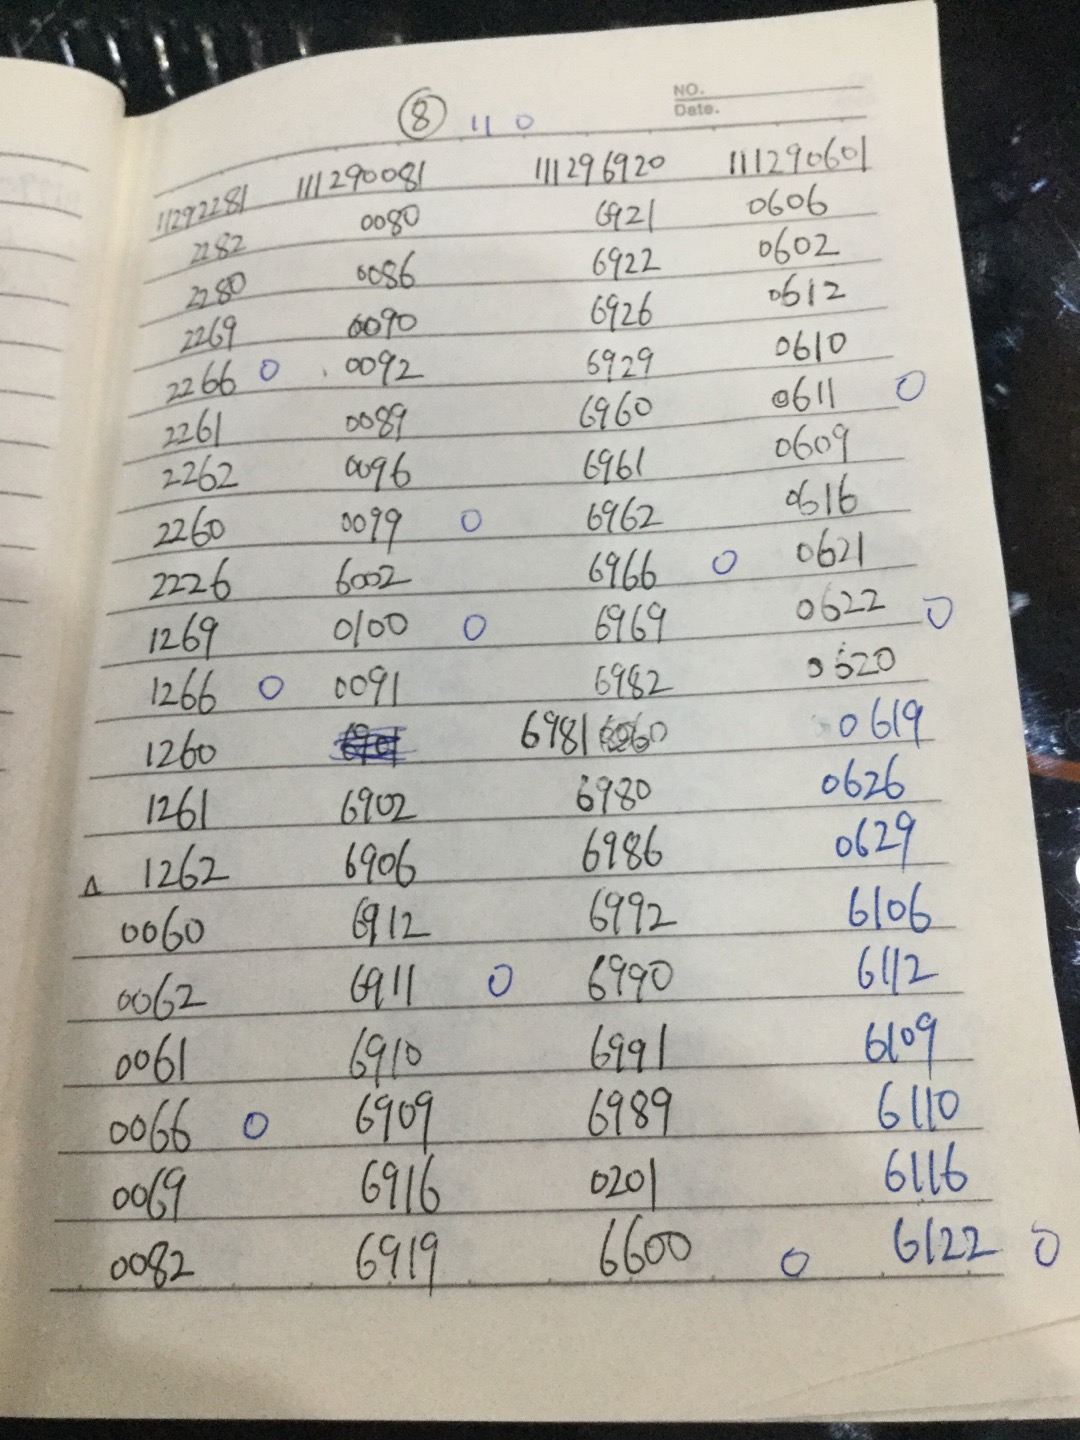 NO.
Date.
8 11 0
11292281 111290081 111296920 111290601
2282 0080 6921 0606
2280 0086 6922 0602
2269 0090 6926 0612
2266 0 0092 6929 0610
2261 0089 6960 0611 0
2262 0096 6961 0609
2260 0099 0 6962 0616
2226 6002 6966 0 0621
1269 0100 0 6969 0622 0
1266 0 0091 6982 0620
1260 6981 0619
1261 6902 6980 0626
Δ 1262 6906 6986 0629
0060 6912 6992 6106
0062 6911 0 6990 6112
0061 6910 6991 6109
0066 0 6909 6989 6110
0069 6916 0201 6116
0082 6919 6600 0 6122 0